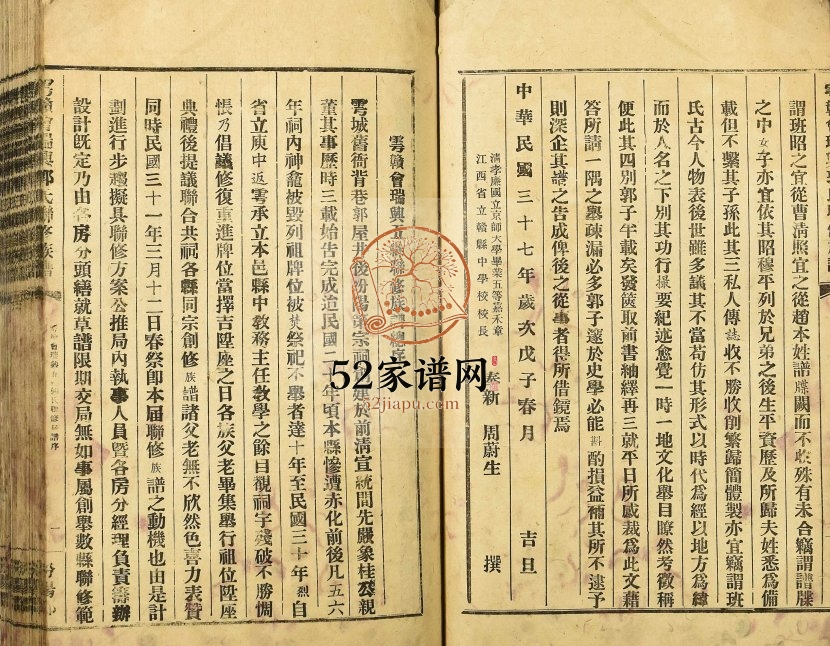 謂班昭之宜從曹淸照宜之從趙本姓譜牒闕而不收殊有未合竊謂譜牒
之中女子亦宜依其昭穆平列於兄弟之後生平資歷及所歸夫姓悉爲備
載但不繫其子孫此其三私人傳誌收不勝收創繁歸簡體製亦宜竊謂班
氏古今人物表後世雖多議其不當苟仿其形式以時代爲經以地方爲緯
而於人名之下別其功行撮要紀述愈覺一時一地文化舉目瞭然考徵稱
便此其四別郭子午載矣發篋取前書紬繹再三就平日所感裁爲此文藉
答所請一隅之舉疎漏必多郭子邃於史學必能斟酌損益補其所不逮予
則深企其譜之告成俾後之從事者得所借鏡焉
中華民國三十七年歲次戊子春月 吉旦
淸孝廉國立京師大學畢業五等嘉禾章
江西省立贛縣中學校校長
奉新 周蔚生 撰
雩贛會瑞興五縣聯修族譜總序
雩城舊衙背巷郭屋井後汾陽第宗祠建於前淸宣統間先嚴象桂公親
董其事歷時三載始告完成迨民國二十年頃本縣慘遭赤化前後凡五六
年祠內神龕被毀列祖牌位被焚祭祀不舉者達十年至民國三十年烈自
省立庾中返雩承立本邑縣中敎務主任敎學之餘目覩祠宇殘破不勝惆
悵乃倡議修復重進牌位當擇吉陞座之日各族父老畢集舉行祖位陞座
典禮後提議聯合共祠各縣同宗創修族譜諸父老無不欣然色喜力表贊
同時民國三十一年三月十二日春祭卽本屆聯修族譜之動機也由是計
劃進行步趨擬具聯修方案公推局內執事人員曁各房分經理負責籌辦
設計旣定乃由各房分頭繕就草譜限期交局無如事屬創舉數縣聯修範
雩贛會瑞興郭氏聯修族譜
一
52家谱网
52jiapu.com